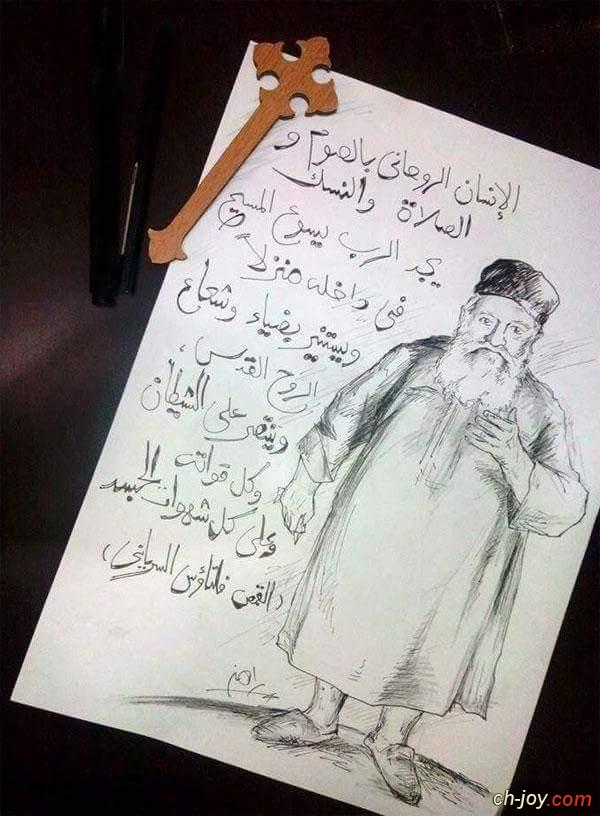 الإنسان الروحانى بالصوم و
الصلاة والنسك
يجد الرب يسوع المسيح
فى داخله منزلاً
ويستنير بضياء وشعاع
الروح القدس ،
وينتصر على الشيطان
وكل قواته
وعلى كل شهوات الجسد
(القمص فلتاؤس السريانى)
ch-joy.com